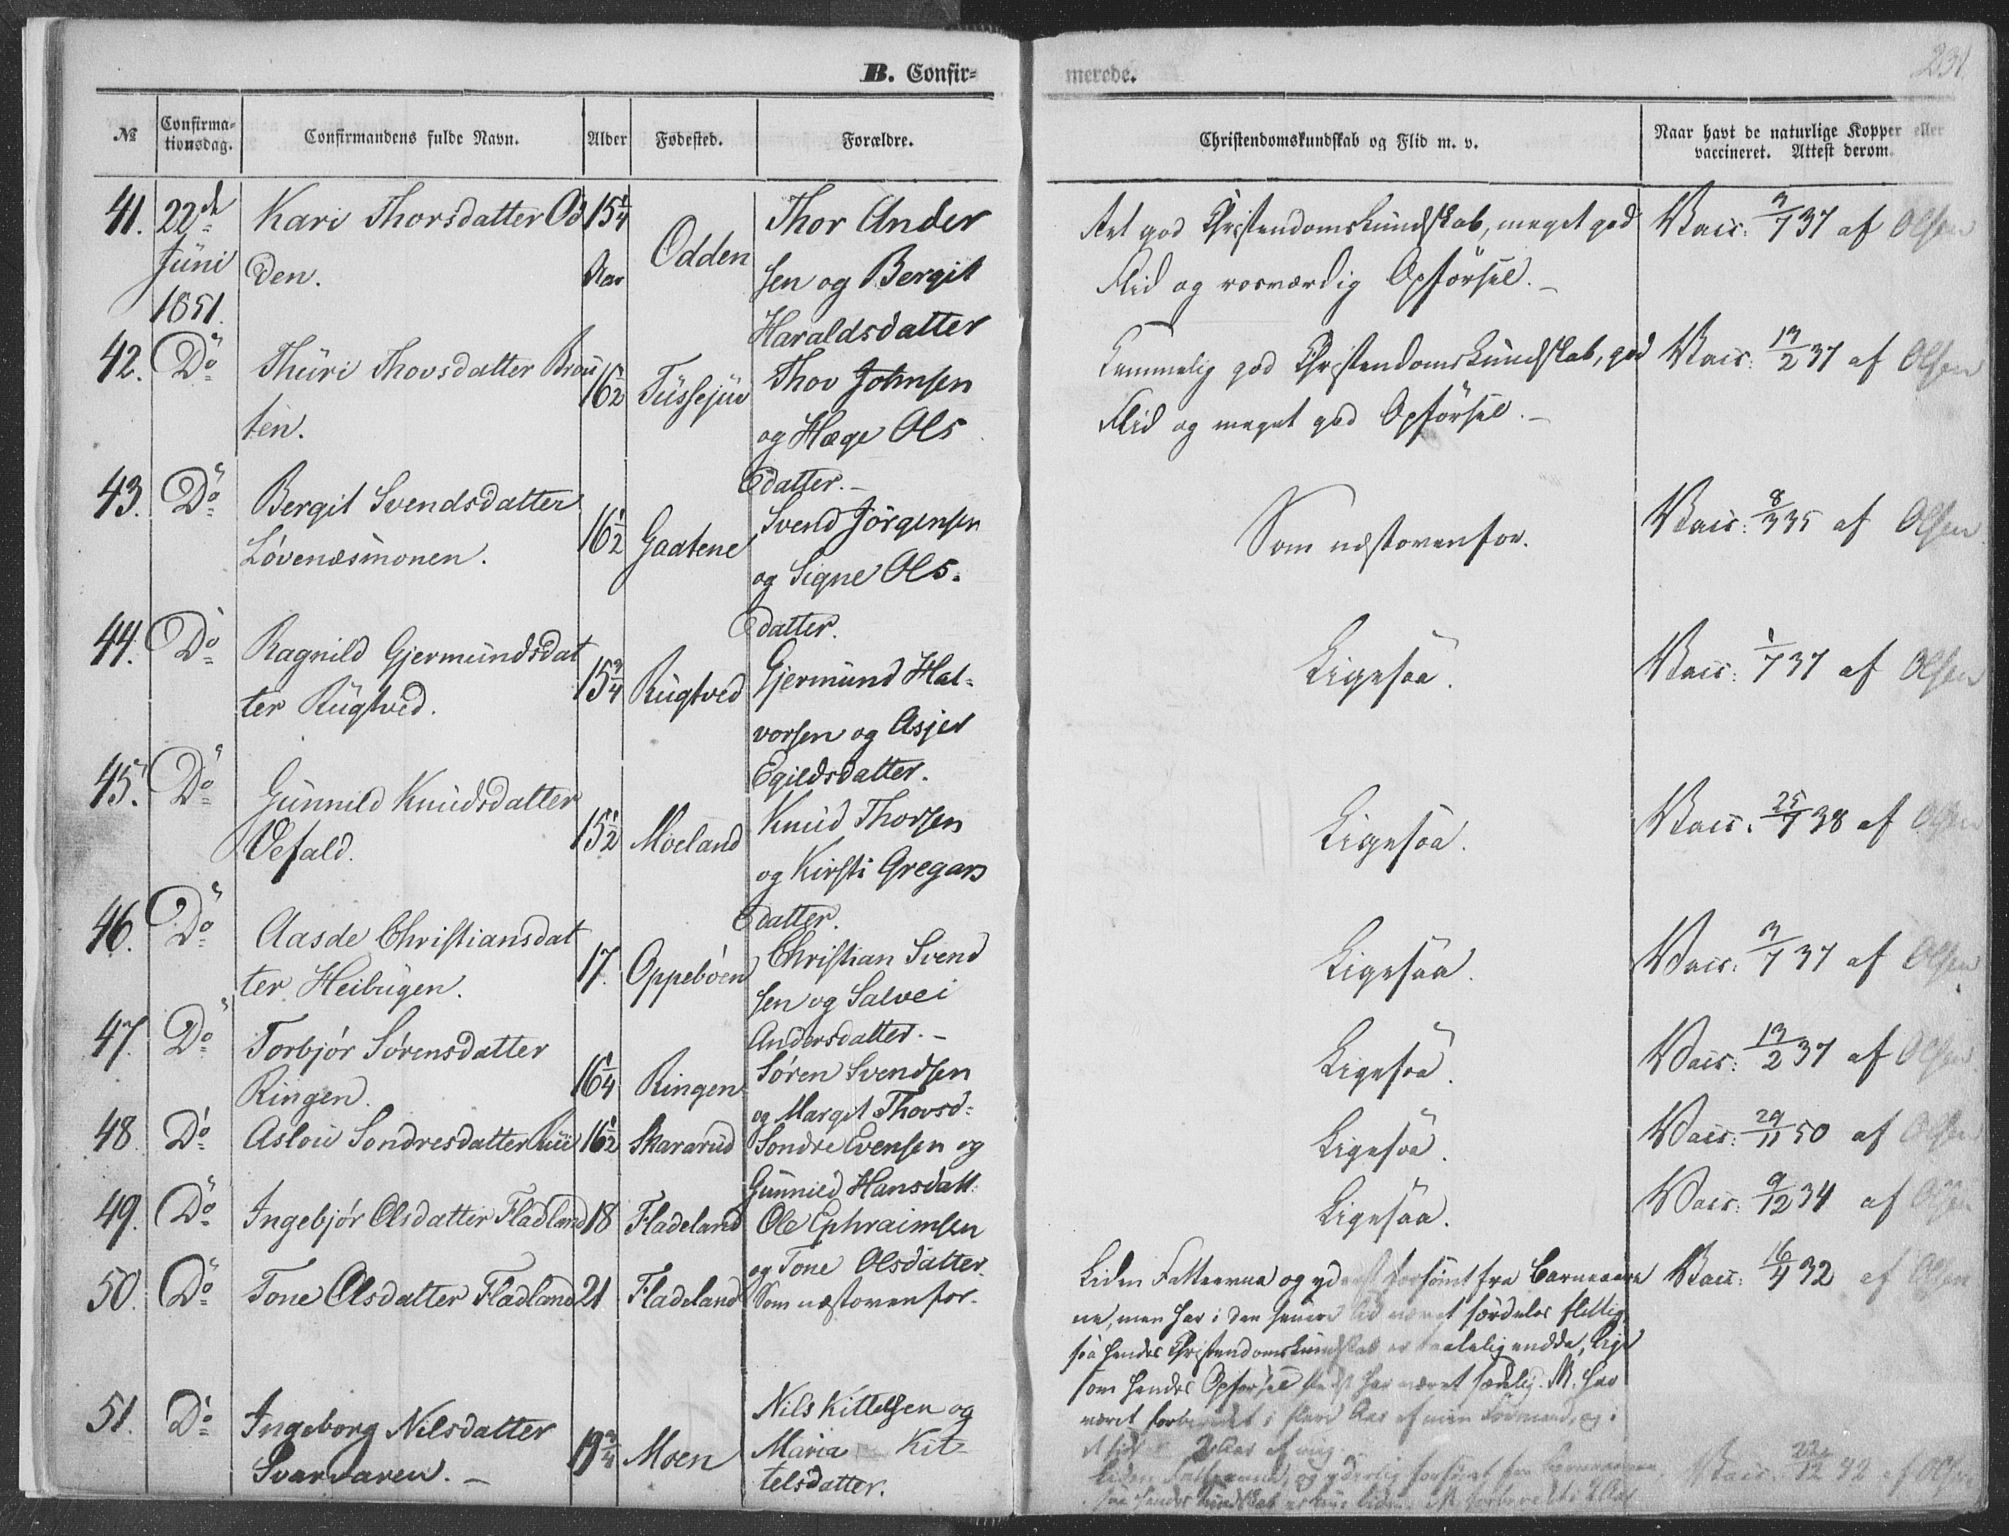 B. Confir=
merede.
231.
№
Confirma=
tionsdag.
Confirmandens fulde Navn.
Alder
Fødested.
Forældre.
Christendomskundskab og Flid m. v.
Naar havt de naturlige Kopper eller
vaccineret. Attest derom.
41. 22de Kari Thorsdatter Od 15 1/4 Thor Ander
Juni den. Aar Odden sen og Bergit
1851. Haraldsdatter
Ret god Christendomskundskab, meget god
Flid og rosværdig Opførsel. —
Vacc: 3/7 37 af Olsen
42. Do Thuri Thovsdatter Brau 16 1/2 Tussejuv Thov Johnsen
ten. og Hæge Ols
datter. —
Temmelig god Christendomskundskab, god
Flid og meget god Opførsel. —
Vacc: 13/2 37 af Olsen
43. Do Bergit Svendsdatter 16 1/2 Gaatene Svend Jørgensen
Løvenæsmonen. og Signe Ols=
datter.
Som næstovenfor.
Vacc: 8/3 35 af Olsen
44. Do Ragnild Gjermundsdat 15 3/4 Rugtved Gjermund Hal=
ter Rugtved. vorsen og Asjer
Egildsdatter.
Ligesaa.
Vacc: 1/7 37 af Olsen
45. Do Gunnild Knudsdatter 15 1/2 Moeland Knud Thorsen
Vefald. og Kirsti Gregars
datter.
Ligesaa.
Vacc: 25/7 38 af Olsen
46. Do Aasde Christiansdat 17. Oppebøen Christian Svend
ter Heibugen. sen og Salvei
Andersdatter. —
Ligesaa.
Vacc: 3/7 37 af Olsen
47. Do Torbjør Sørensdatter 16 1/4 Ringen Søren Svendsen
Ringen. og Margit Thovsd=
Ligesaa.
Vacc: 13/2 37 af Olsen
48. Do Aslou Sondresdatter 16 1/2 Skararud Sondre Evensen og
Gunnild Hansdatt:
Ligesaa.
Vacc: 29/11 50 af Olsen
49. Do Ingebjør Olsdatter Fladland 18 Fladeland Ole Ephraimsen
og Tone Olsdatter.
Ligesaa.
Vacc: 9/12 34 af Olsen
50. Do Tone Olsdatter Fladland 21 Fladeland Som næstovenfor.
Liden Fatteevne og yderst forsømt fra Barneaare
ne, men har i den senere Tid været særdeles flittig,
saa hendes Christendomskundskab er taalelig endda, lige
som hendes Opførsel stedse har været sædelig. Är har
været forberedet i flere Aar af min Formand, og i
2 Aar af mig.
Vacc: 16/4 32 af Olsen
51. Do Ingeborg Nilsdatter 19 3/4 Moen Nils Kittelsen og
Svarvaren. — Maria Kit=
telsdatter.
Liden Fatteevne, og yderlig forsømt fra Barneaarene
saa hendes Kundskab er kun liden. forberedt i 2 Aar
Vacc: 22/12 42 af Olsen